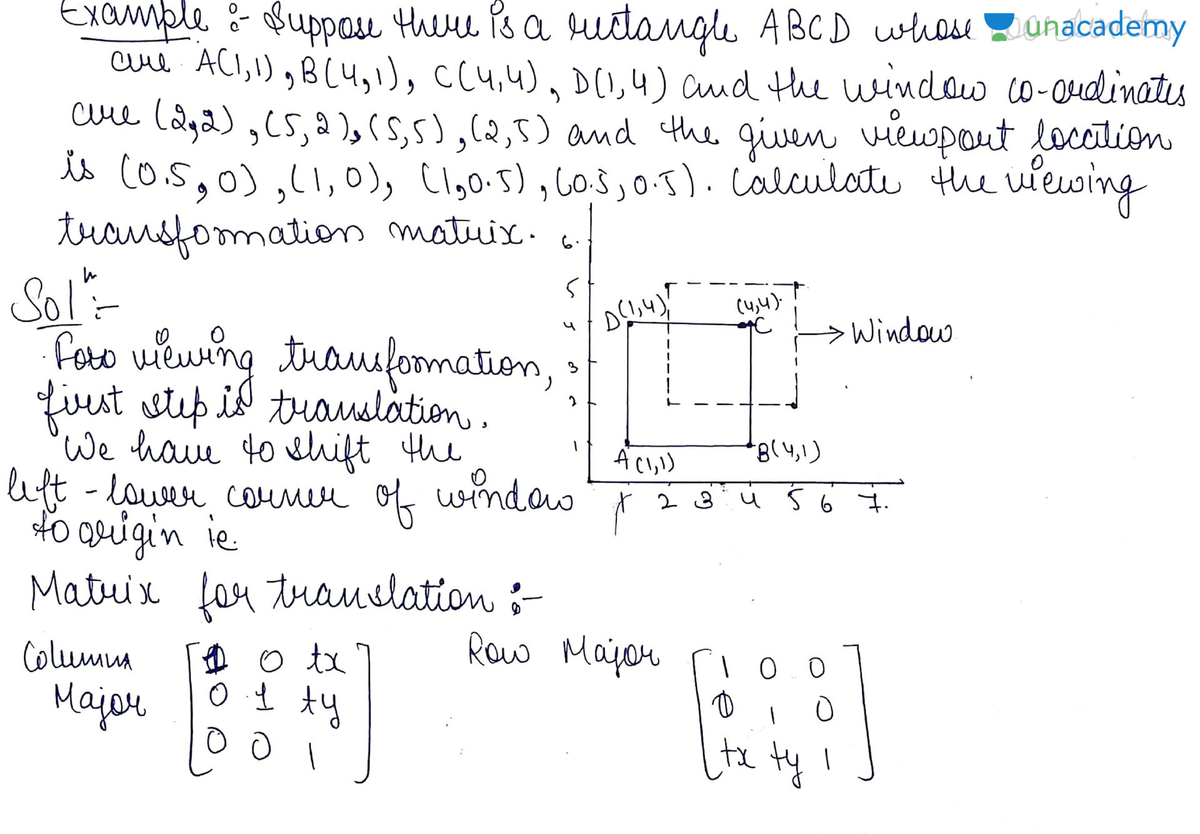 Example :- Suppose there is a rectangle ABCD whose
unacademy
are A(1,1), B(4,1), C(4,4), D(1,4) and the window co-ordinates
are (2,2), (5,2), (5,5), (2,5) and the given viewport location
is (0.5,0), (1,0), (1,0.5), (0.5,0.5). Calculate the viewing
transformation matrix.
Solⁿ :-
For viewing transformation,
first step is translation.
We have to shift the
left-lower corner of window
to origin ie.
6
5
4
3
2
1
D(1,4)
(4,4)
C
→ Window
A(1,1)
B(4,1)
1 2 3 4 5 6 7.
Matrix for translation :-
Column Major
[1 0 tx
0 1 ty
0 0 1]
Row Major
[1 0 0
0 1 0
tx ty 1]